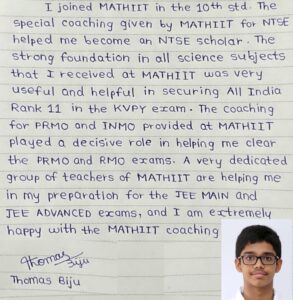 I joined MATHIIT in the 10th std. The
special coaching given by MATHIIT for NTSE
helped me become an NTSE scholar. The
strong foundation in all science subjects
that I received at MATHIIT was very
useful and helpful in securing All India
Rank 11 in the KVPY exam. The coaching
for PRMO and INMO provided at MATHIIT
played a decisive role in helping me clear
the PRMO and RMO exams. A very dedicated
group of teachers of MATHIIT are helping me
in my preparation for the JEE MAIN and
JEE ADVANCED exams, and I am extremely
happy with the MATHIIT coaching
Thomas
Biju
Thomas Biju